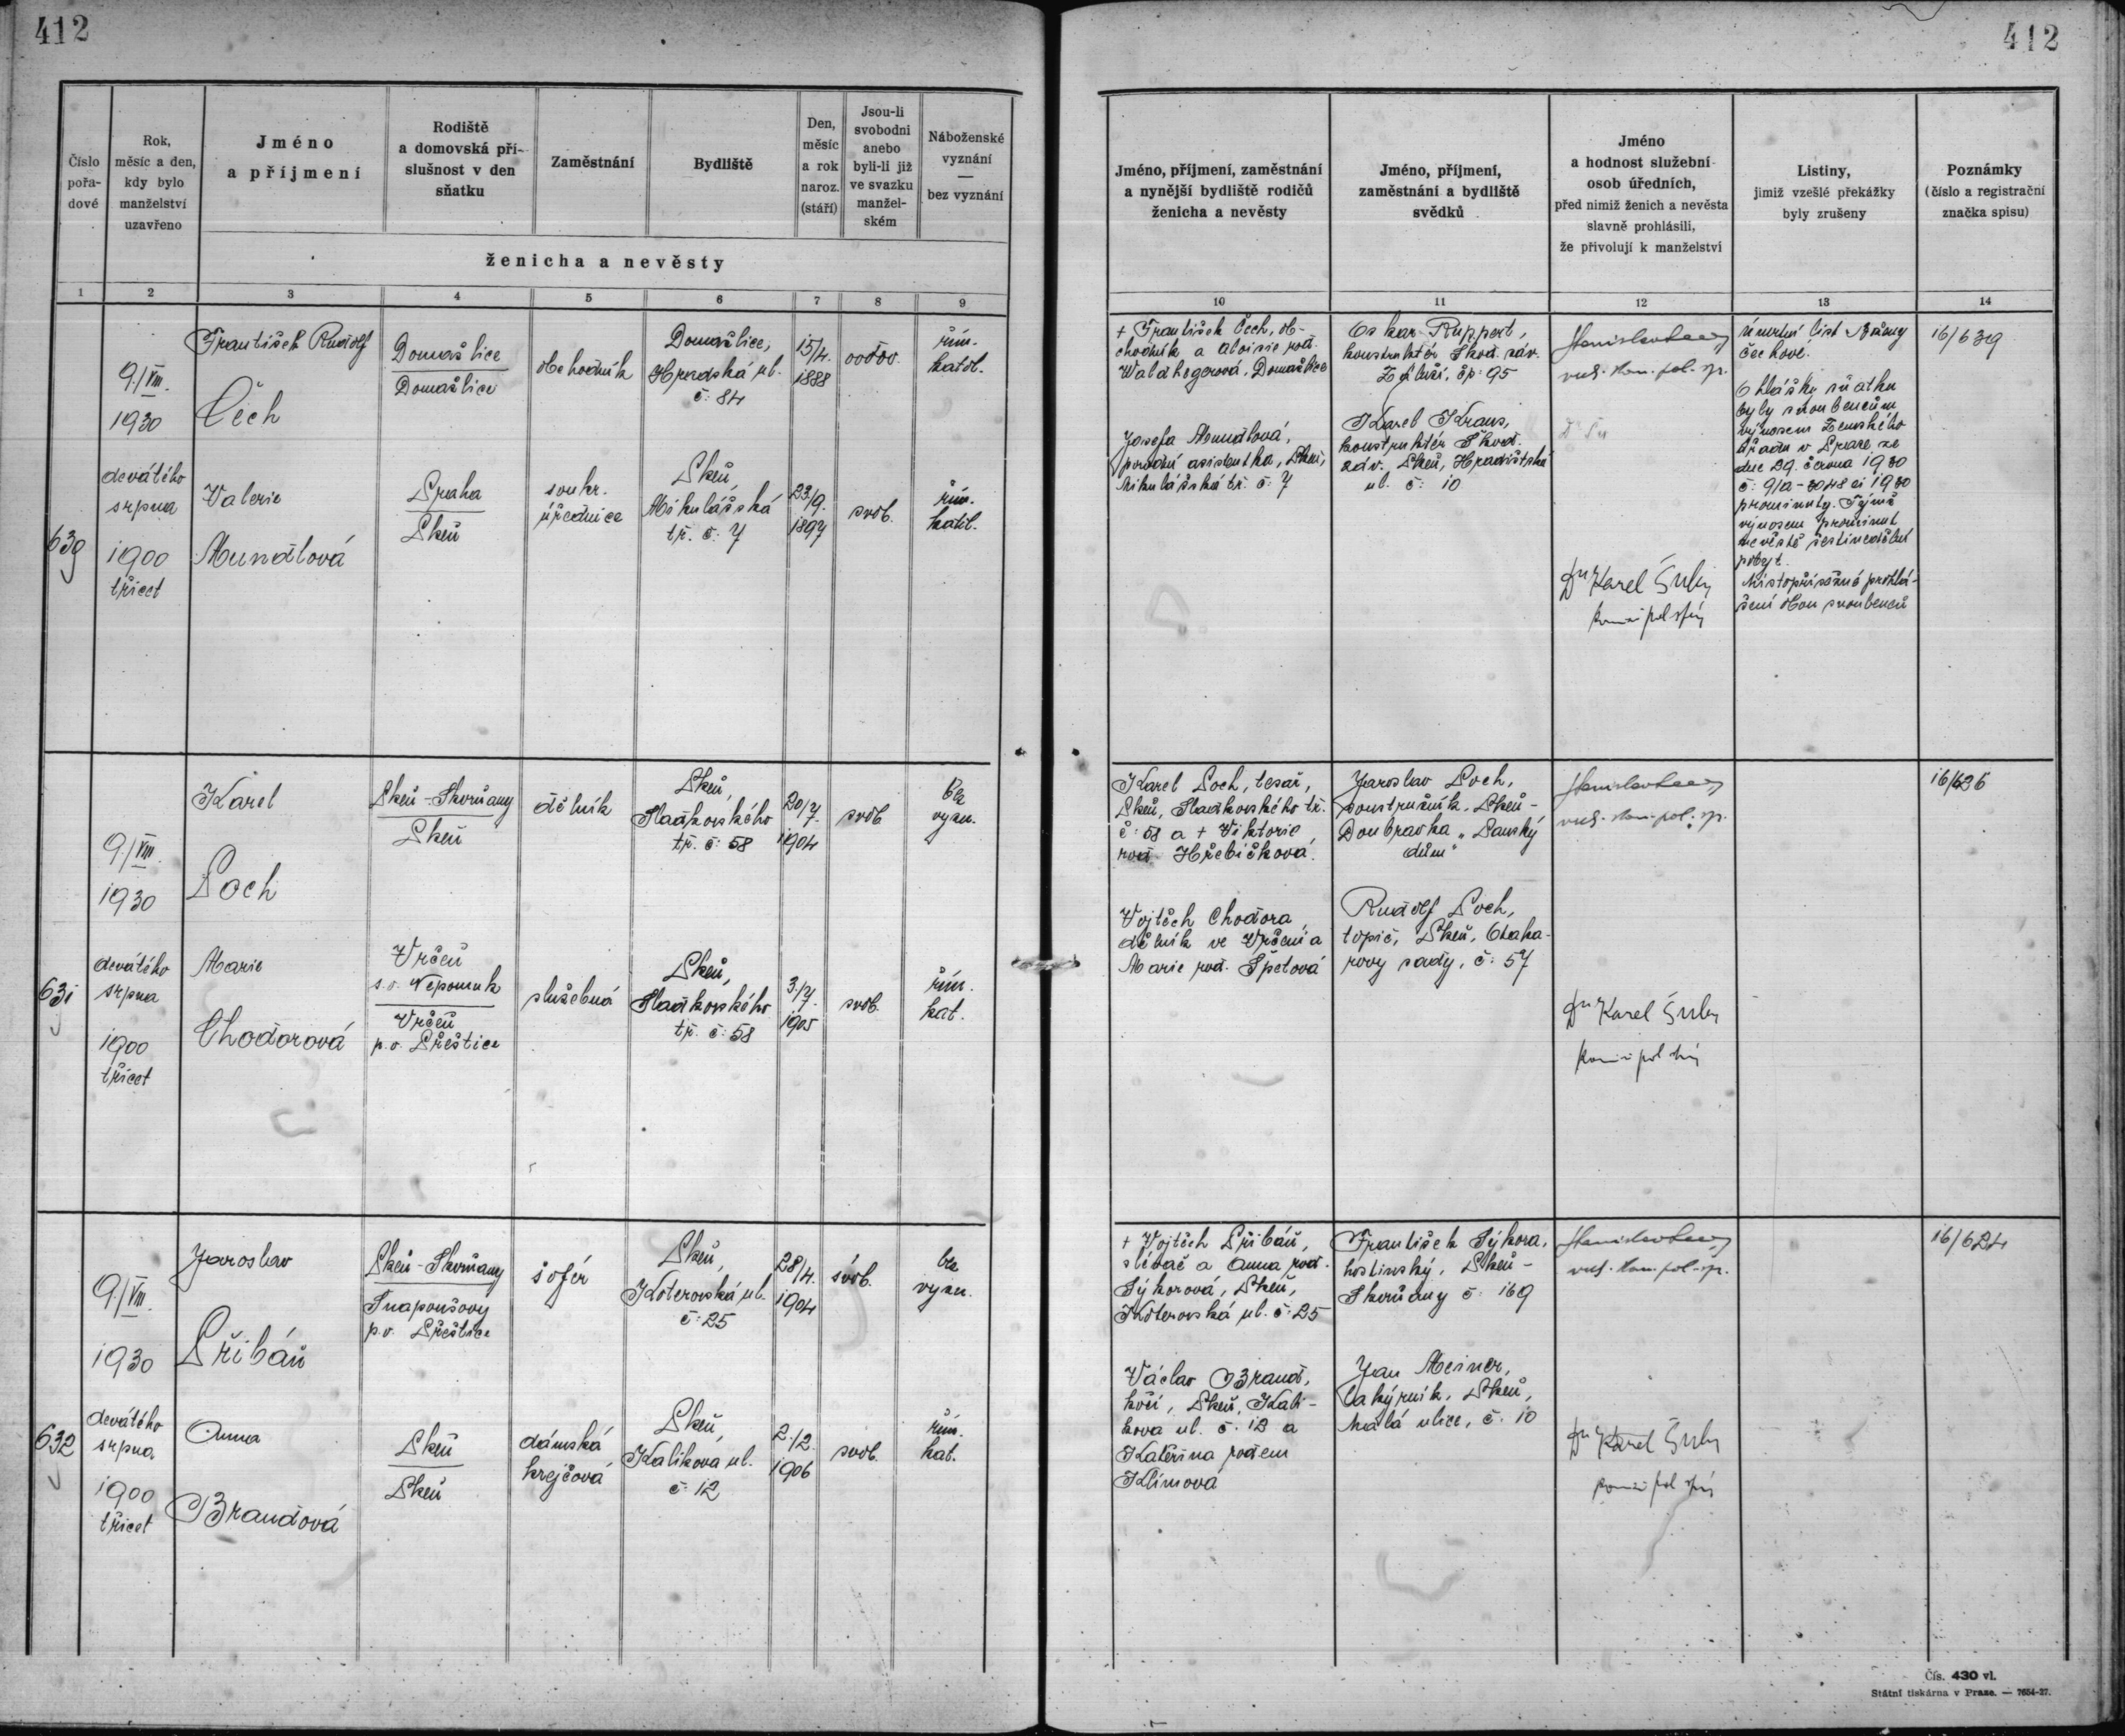 412
412
Číslo
pořa-
dové
Rok,
měsíc a den,
kdy bylo
manželství
uzavřeno
Jméno
a příjmení
Rodiště
a domovská pří-
slušnost v den
sňatku
Zaměstnání
Bydliště
Den,
měsíc
a rok
naroz.
(stáří)
Jsou-li
svobodni
anebo
byli-li již
ve svazku
manžel-
ském
Náboženské
vyznání
—
bez vyznání
ženicha a nevěsty
1 2 3 4 5 6 7 8 9
Jméno, příjmení, zaměstnání
a nynější bydliště rodičů
ženicha a nevěsty
Jméno, příjmení,
zaměstnání a bydliště
svědků
Jméno
a hodnost služební
osob úředních,
před nimiž ženich a nevěsta
slavně prohlásili,
že přivolují k manželství
Listiny,
jimiž vzešlé překážky
byly zrušeny
Poznámky
(číslo a registrační
značka spisu)
10 11 12 13 14
9./VIII.
1930
devátého
srpna
1900
třicet
František Rudolf
Čech
Domažlice
Domažlice
obchodník
Domažlice,
Hradská ul.
č: 84
15/4.
1888
ovdov.
řím.
katol.
Valerie
Mundlová
Praha
Plzeň
soukr.
úřednice
Plzeň,
Mikulášská
tř. č: 7
23/9.
1897
svob.
řím.
katol.
+ František Čech, ob-
chodník a Aloisie roz.
Waldhegerová, Domažlice
Josefa Mundlová,
porodní asistentka, Plzeň,
Mikulášská tř. č: 7
Oskar Ruppert,
konstruktér Škod. záv.
čp: 95
Karel Kraus,
konstruktér Škod.
záv. Plzeň, Hradištská
ul. č: 10
Dr Karel
Úmrtní list
Čechové.
Ohlášky sňatku
byly snoubencům
výnosem Zemského
úřadu v Praze ze
dne 29. června 1930
č: 9/a-3048 ai 1930
prominuty. Týmž
výnosem prominut
nevěstě šestinedělní
pobyt.
Místopřísežné prohlá-
šení obou snoubenců
16/639
631
9./VIII.
1930
devátého
srpna
1900
třicet
Karel
Poch
Plzeň-Skvrňany
Plzeň
dělník
Plzeň,
Sladkovského
tř. č: 58
20/7.
1904
svob.
bez
vyzn.
Marie
Chodorová
Vrčeň
s.o. Nepomuk
Vrčeň
p.o. Přeštice
služebná
Plzeň,
Sladkovského
tř. č: 58
3./7.
1905
svob.
řím.
kat.
Karel Poch, tesař,
Plzeň, Sladkovského tř.
č: 58 a + Viktorie
roz. Hřebíčková.
Vojtěch Chodora,
dělník ve Vrčeni a
Marie roz. Špetová
Jaroslav Poch,
soustružník, Plzeň-
Doubravka „Panský
dům“
Rudolf Poch,
topič, Plzeň, Otaka-
rovy sady, č: 57
Dr Karel
16/626
632
9./VIII.
1930
devátého
srpna
1900
třicet
Jaroslav
Přibáň
Plzeň-Skvrňany
Snapoušovy
p.o. Přeštice
šofér
Plzeň,
Koterovská ul.
č: 25
28/4.
1904
svob.
bez
vyzn.
Anna
Brandová
Plzeň
Plzeň
dámská
krejčová
Plzeň,
Kalikova ul.
č: 12
2./2.
1906
svob.
řím.
kat.
+ Vojtěch Přibáň,
slévač a Anna roz.
Sýkorová, Plzeň,
Koterovská ul. č: 25
Václav Brand,
kočí, Plzeň, Kali-
kova ul. č. 12 a
Kateřina rozem
Klímová
František Sýkora,
hostinský, Plzeň-
Skvrňany č: 169
Jan Meisner,
lakýrník, Plzeň,
Malá ulice, č. 10
Dr Karel
16/624
Čís. 430 vl.
Státní tiskárna v Praze. — 7654-27.